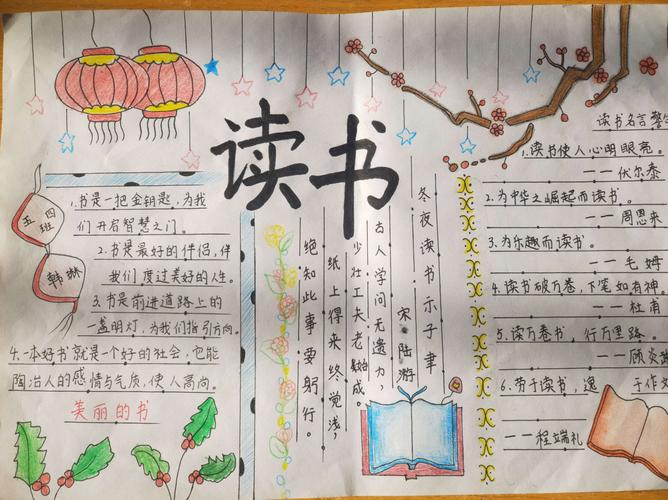 读书
五四班
韩琳
1.书是一把金钥匙,为我
们开启智慧之门。
2.书是最好的伴侣,伴
我们度过美好的人生。
3.书是前进道路上的
一盏明灯,为我们指引方向。
4.一本好书就是一个好的社会,它能
陶冶人的感情与气质,使人高尚。
美丽的书
冬夜读书示子聿
宋·陆游
古人学问无遗力,
少壮工夫老始成。
纸上得来终觉浅,
绝知此事要躬行。
读书名言警
1.读书使人心明眼亮。
——伏尔泰
2.为中华之崛起而读书。
——周恩来
3.为乐趣而读书。
——毛姆
4.读书破万卷,下笔如有神。
——杜甫
5.读万卷书,行万里路。
——顾炎
6.劳于读书,逸于作
——程端礼